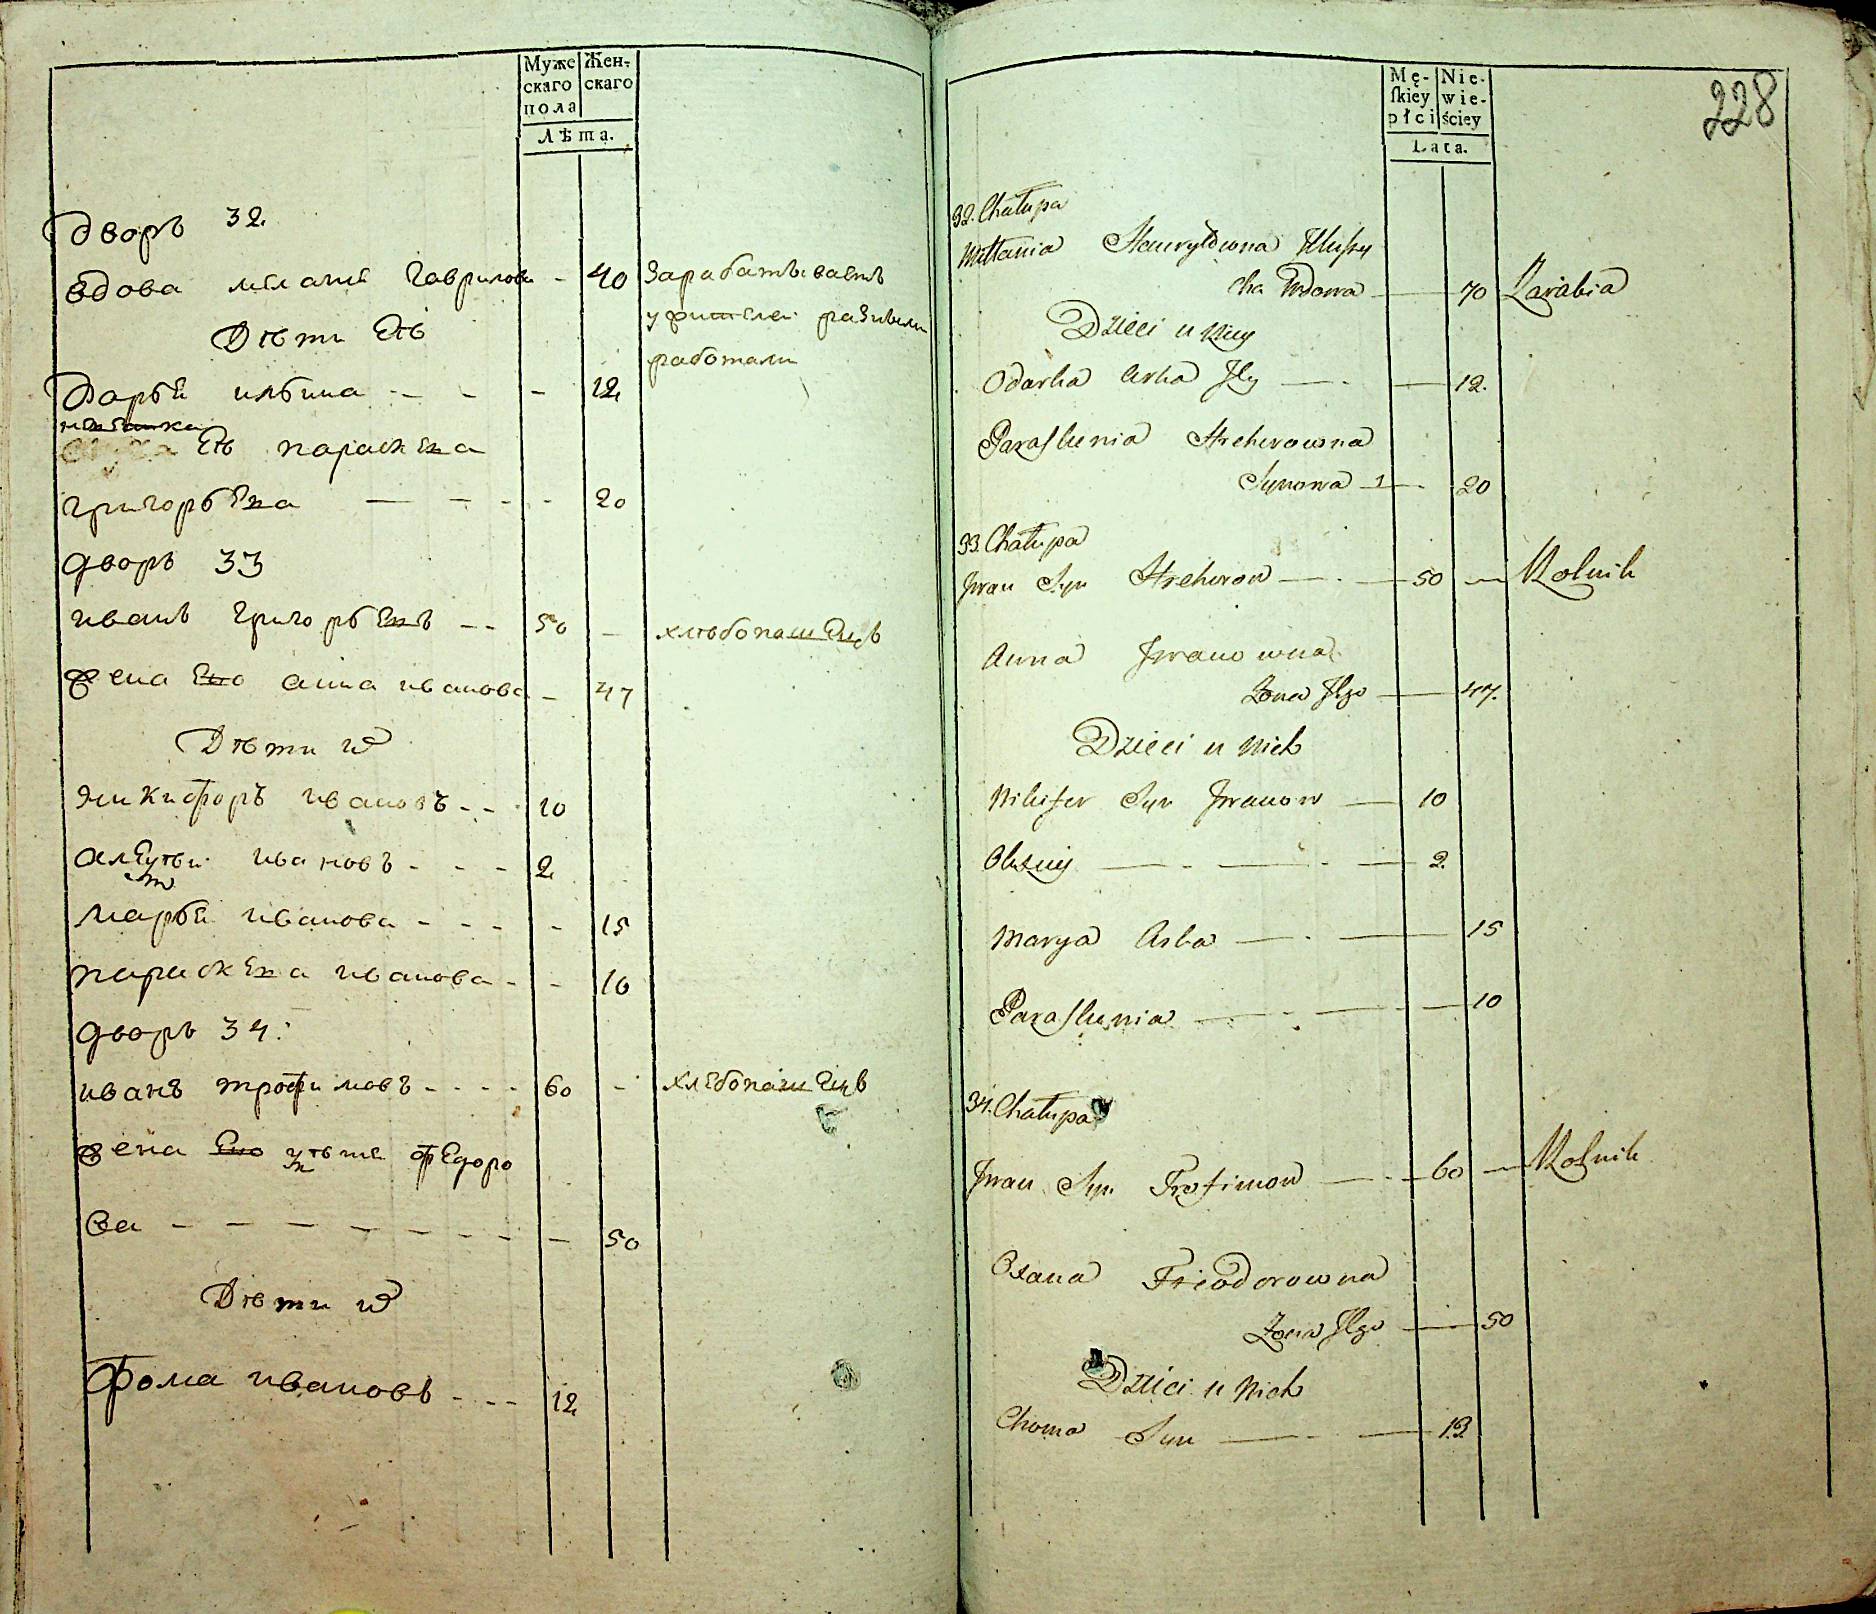 Муже
скаго
пола
Жен-
скаго
Лѣта.
Дворъ 32.
вдова мелания Гаврилова - 40 Зарабатываетъ
Дѣти Еѣ
работами
Дарья ильина - - - 12
Еѣ параскева
григорьева - - - - 20
дворъ 33
иванъ григорьевъ - - 50 - хлѣбопашецъ
жена Его анна иванова - 47
Дѣти их
Никифоръ ивановъ - - 10
Алексѣй ивановъ - - - 2
Марья иванова - - - - 15
параскева иванова - - 10
дворъ 34.
иванъ трофимовъ - - - - 60 - хлебопашецъ
жена Его федоро
ва - - - - - - - - - 50
Дѣти их
Фома ивановъ - - - 12
Mę-
skiey
płci
Nie-
wie-
ściey
Lata.
228
32. Chałupa
Millania Hawryłowna
cha Wdowa — 70 Zarabia
Dzieci u Niey
Odarka Corka Jey — 12.
Paraskewia Hrehorowna
Synowa 1 — 20
33. Chałupa
Jwan Syn Hrehorow — 50 — Rolnik
Anna Jwanowna
Żona Jego — 47.
Dzieci u Nich
Nikifor Syn Jwanow — 10
Olexiey — 2.
Marya Corka — 15
Paraskewia — 10
34. Chałupa
Jwan Syn Trofimow — 60 — Rolnik
Oxana Fieodorowna
Żona Jego — 50
Dzieci u Nich
Choma Syn — 13.